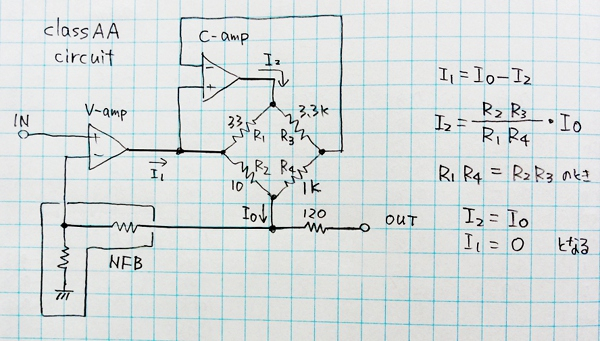 class AA
circuit
C-amp
I₂
V-amp
IN
−
+
+
−
I₁
33
R₁
3.3K
R₃
R₂
10
R₄
1K
I₀
120
OUT
NFB
I₁ = I₀ − I₂
I₂ = R₂ R₃ / R₁ R₄ · I₀
R₁ R₄ = R₂ R₃ のとき
I₂ = I₀
I₁ = 0 となる